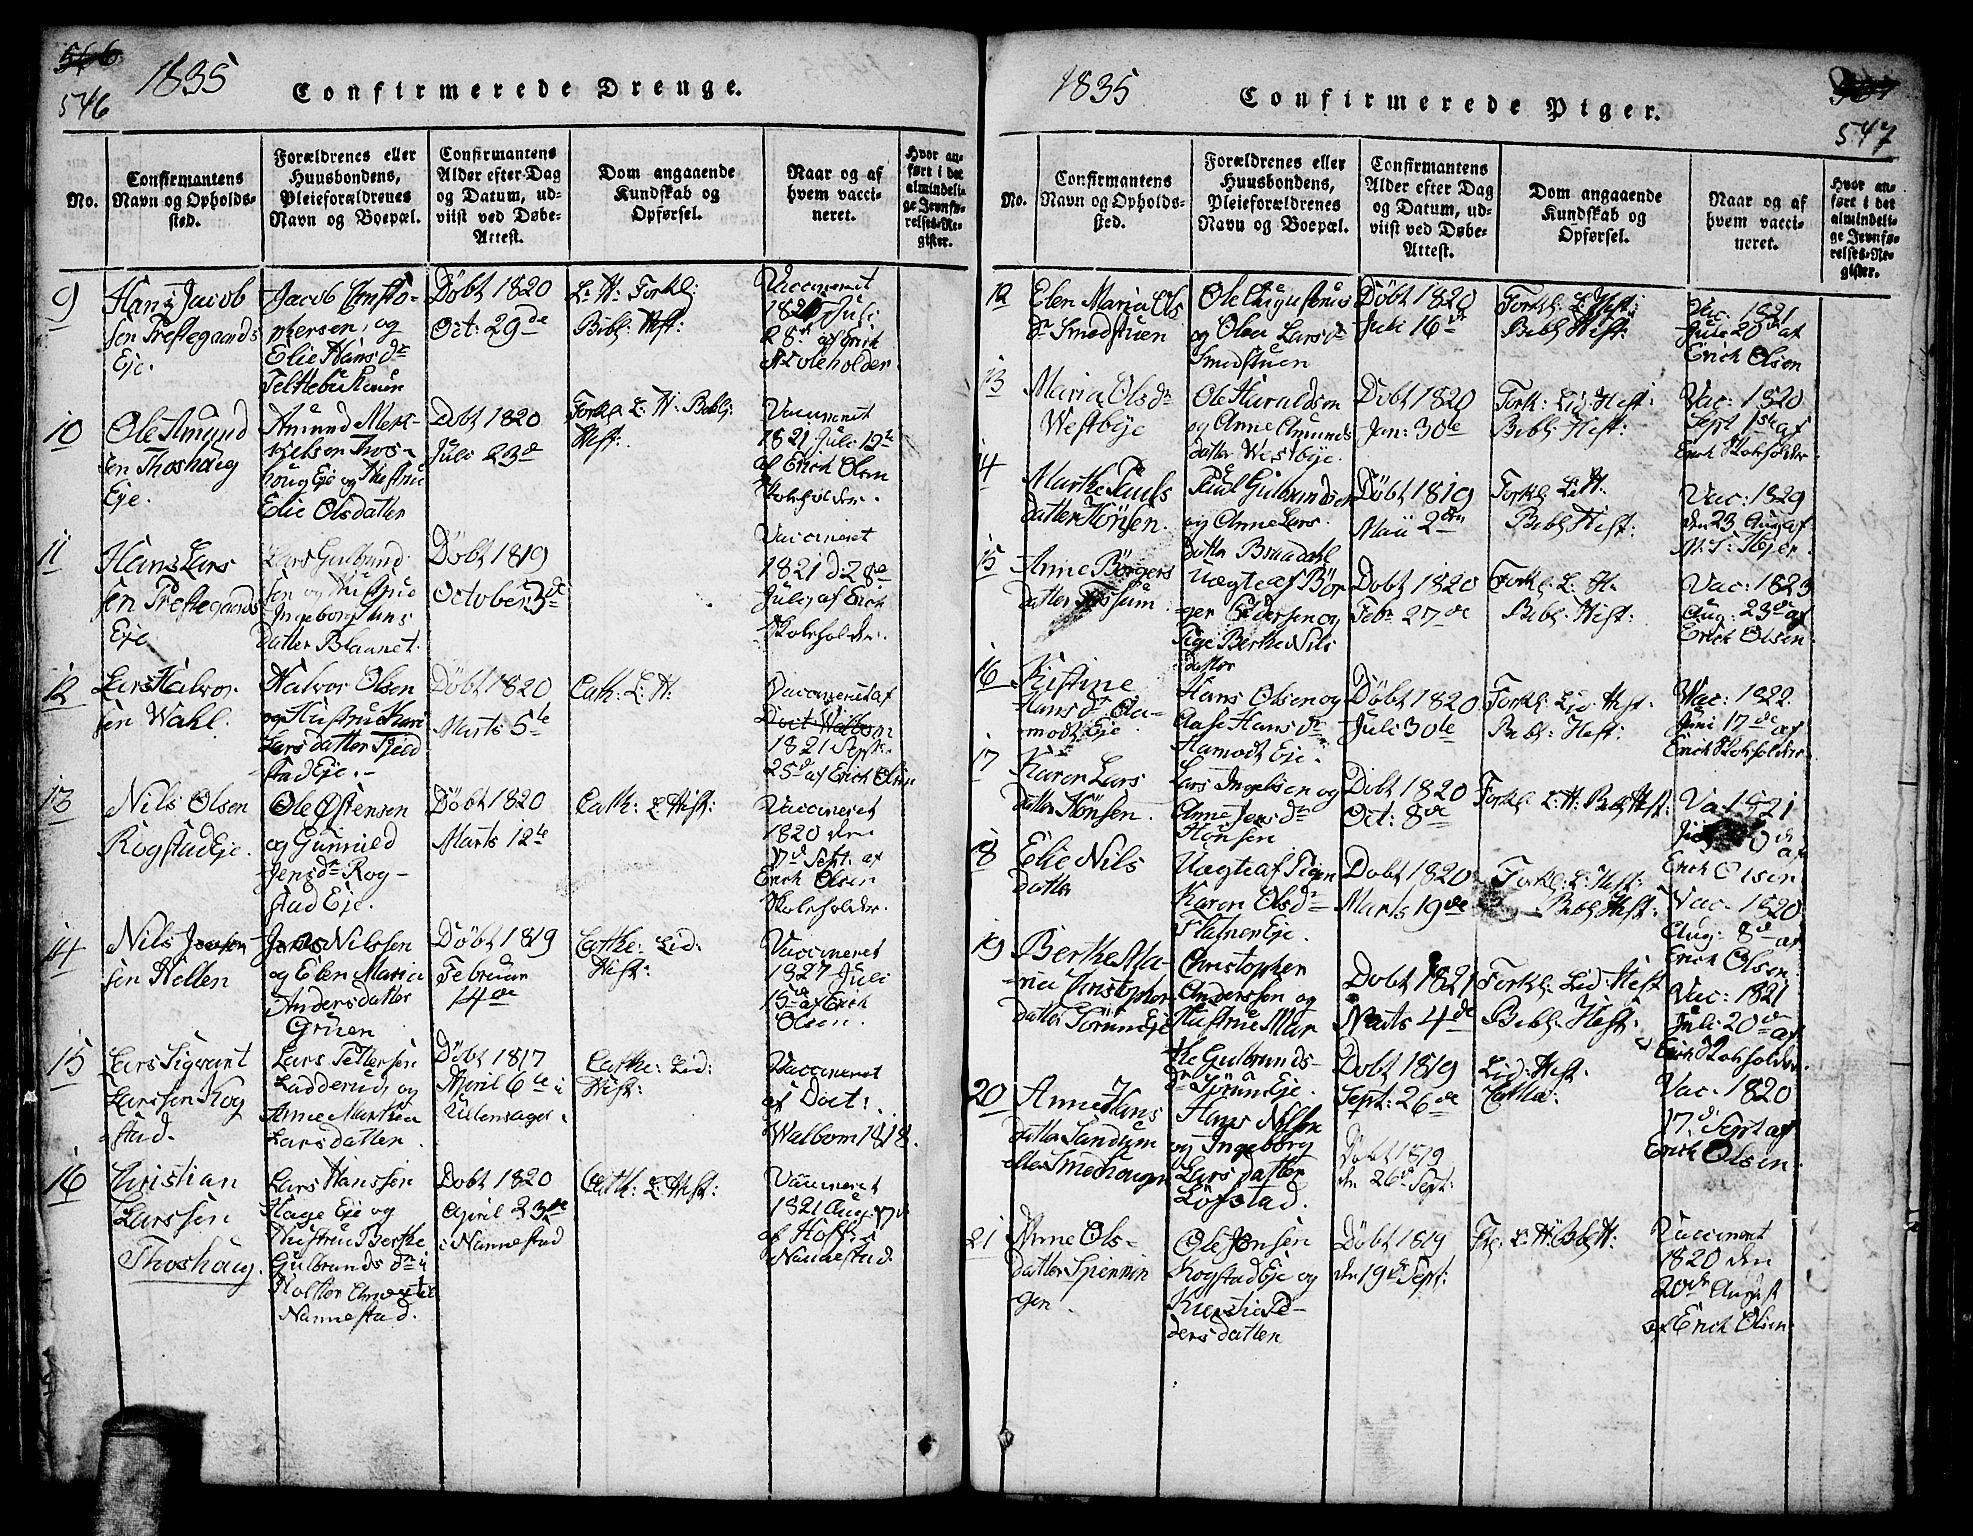 546
1835
Confirmerede Drenge.
No.
Confirmantens
Navn og Opholds-
sted.
Forældrenes eller
Huusbondens,
Pleieforældrenes
Navn og Boepæl.
Confirmantens
Alder efter Dag
og Datum, ud-
viist ved Døbe-
Attest.
Dom angaaende
Kundskab og
Opførsel.
Naar og af
hvem vacci-
neret.
Hvor an-
ført i det
almindeli-
ge Jevnfø-
relses-Re-
gister.
9
Hans Jacob
sen Prestegaards
Eje.
Jacob Christo-
phersen, og
Elie Hans dr
Døbt 1820
Oct: 29de
L: H: Forkl:
Bibl: Hist:
Vaccineret
Juli
af Erich
Skoleholder.
10
Ole Amund
sen Thoshaug
Eje.
Amund
Thos-
houg Eje og Hustrue
Elie Olsdatter
Døbt 1820
Juli 23de
Forkl. L. H. Bibl:
Hist:
Vaccineret
1821 Juli 12te
af Erich Olsen
Skoleholder.
11
Hans Lars
sen Prestegaards
Eje.
Lars Gulbrand
sen og Hustrue
Ingeborg Hans
datter Blaanet.
Døbt 1819
October 3de
Vaccineret
1821 d: 28de
Juli, af Erich
Skoleholder.
12
Lars Halvor
sen Wahl.
Halvor Olsen
og Hustrue Kari
Lars datter Tjeld
stad Eje.
Døbt 1820
Marts 5te
Cath: L: H:
Vaccineret af
Doct: Walbom
1821 Sept:
25de af Erich Olsen
13
Nils Olsen
Rogstad Eje.
Ole Østensen
og Gunnild
Jensdr Rog-
stad Eje.
Døbt 1820
Marts 12te
Cath: L Hist:
Vaccineret
1820 den
17de Sept: af
Erich Olsen
Skoleholder.
14
Nils
sen Hellen
Nilssen
og Elen Maria
Andersdatter
Gruen
Døbt 1819
Februar
14de
Cathe: Lid:
Hist:
Vaccineret
1827 Juli
15de af Erich
Olsen.
15
Lars Sigvart
Larssen Rog
stad.
Lars Pettersen
Ladderud, og
Anne Marthea
Larsdatter.
Døbt 1817
April 6te i
Ullensager.
Cathe: Lid:
Hist:
Vaccineret
af Doct:
Walbom 1818.
16
Christian
Larssen
Thoshaug.
Lars Hanssen
Hage Eje og
Hustrue Berthe
Gulbrands dr i
Nannestad.
Døbt 1820
April 23de
i Nannestad
Cath: L Hist:
Vaccineret
1821 Aug: 17de
af Hoff i
Nannestad.
547
1835
Confirmerede Piger.
No.
Confirmantens
Navn og Opholds-
sted.
Forældrenes eller
Huusbondens,
Pleieforældrenes
Navn og Boepæl.
Confirmantens
Alder efter Dag
og Datum, ud-
viist ved Døbe-
Attest.
Dom angaaende
Kundskab og
Opførsel.
Naar og af
hvem vacci-
neret.
Hvor an-
ført i det
almindeli-
ge Jevnfø-
relses-Re-
gister.
12
Elen Maria Ols
dr Smedstuen
Ole Augustinus
og Olea Lars dr
Smedstuen
Døbt 1820
Juli 16de
Forkl: L Hist:
Bibl: Hist:
Vac: 1821
Juli 20de af
Erich Olsen
13
Maria Ols dr
Westbye
Ole Haraldsen
og Anne Amunds
datter Westbye.
Døbt 1820
Jan: 30te
Forkl: Lid: Hist:
Bibl: Hist:
Vac: 1820
Sept 1ste af
Erich Skoleholder
14
Marthe Pauls
datter Hønsen.
Paul Gulbrandsen
og Anne Lars
datter Braadahl
Døbt 1819
Maii 2den
Forkl: L: H:
Bibl: Hist:
Vac: 1829
den 23 Aug af
15
Anne Børgers
datter
Uægte af Bør
ger Pedersen og
Pige Berthe Nils
datter
Døbt 1820
Febr 27de
Forkl: L: H:
Bibl: Hist:
Vac: 1823
Aug: 23de af
Erich Olsen
16
Kistine
Hans dr Ha-
modt Eje
Hans Olsen og
Aase Hans dr
Hamodt Eje.
Døbt 1820
Juli 30te
Forkl: Lid: Hist:
Bibl: Hist:
Vac: 1822
Juni 17de af
Erich Skoleholder
17
Karen Lars
datter Hønsen.
Lars Ingelsen og
Anne Jens dr
Hønsen
Døbt 1820
Oct: 8de
Forkl: L: H: Bibl Hist:
Vac 1821
af
Erich Olsen
18
Elie Nils
datter
Uægte af Pigen
Karen Olsdr
Flatner Eje.
Døbt 1820
Marts 19de
Forkl: L: Hist:
Bibl: Hist:
Vac: 1820
Aug: 8de af
Erich Olsen.
19
Berthe Ma-
ria Christopher
datter Sørum Eje
Christopher
Anderssen og
Hustrue Mar
the Gulbrands-
dr Sørum Eje.
Døbt 1821
Marts 4de
Forkl: Lid: Hist
Bibl: Hist:
Vac: 1821
Juli 20de af
Erich Skoleholder.
20
Anne Hans
datter Sandum
eller Smedhaugen
Hans Nilsen
og Ingeborg
Lars datter
Løfstad.
Døbt 1819
Sept: 26de
Døbt 1819
den 26de Sept:
Lid: Hist.
Vac: 1820
17de Sept af
Erich Olsen.
21
Anne Ols-
datter Spennin
gen.
Ole Jensen
Rogstad Eje og
Kierstie Pe-
ders datter
Døbt 1819
den 19de Sept:
L: H: Bibl H:
Vaccineret
1820 den
20de August
af Erich Olsen.